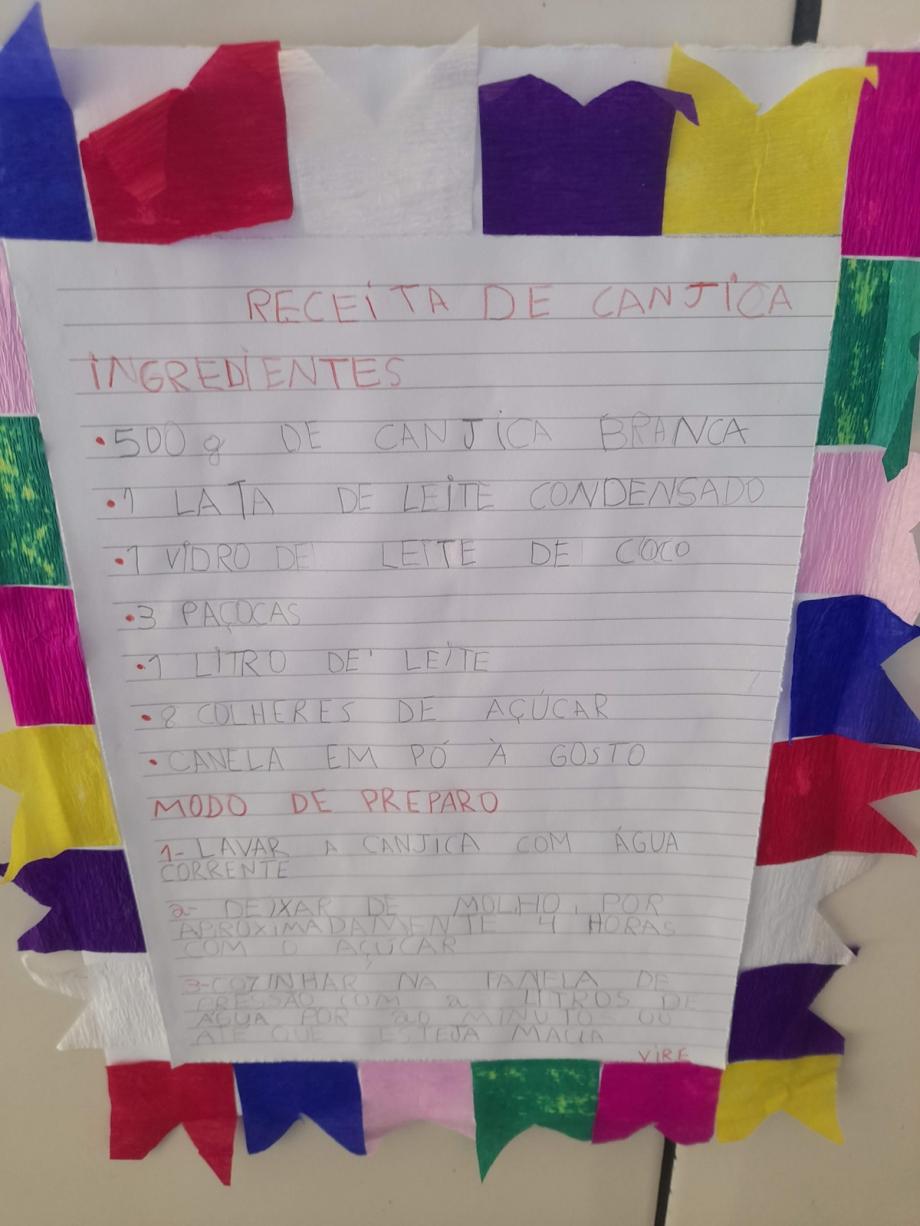 RECEITA DE CANJICA
INGREDIENTES
• 500 g DE CANJICA BRANCA
• 1 LATA DE LEITE CONDENSADO
• 1 VIDRO DE LEITE DE COCO
• 3 PAÇOCAS
• 1 LITRO DE LEITE
• 8 COLHERES DE AÇÚCAR
• CANELA EM PÓ À GOSTO
MODO DE PREPARO
1- LAVAR A CANJICA COM ÁGUA
CORRENTE
2- DEIXAR DE MOLHO, POR
APROXIMADAMENTE 4 HORAS
COM O AÇÚCAR
3- COZINHAR NA PANELA DE
PRESSÃO COM 2 LITROS DE
ÁGUA POR 20 MINUTO OU
ATÉ QUE ESTEJA MACIA
VIRE